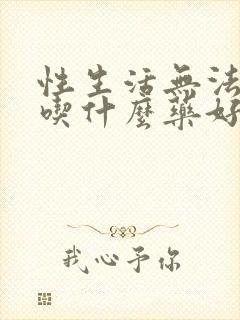 性生活無法
喫什麼藥好
我心予你